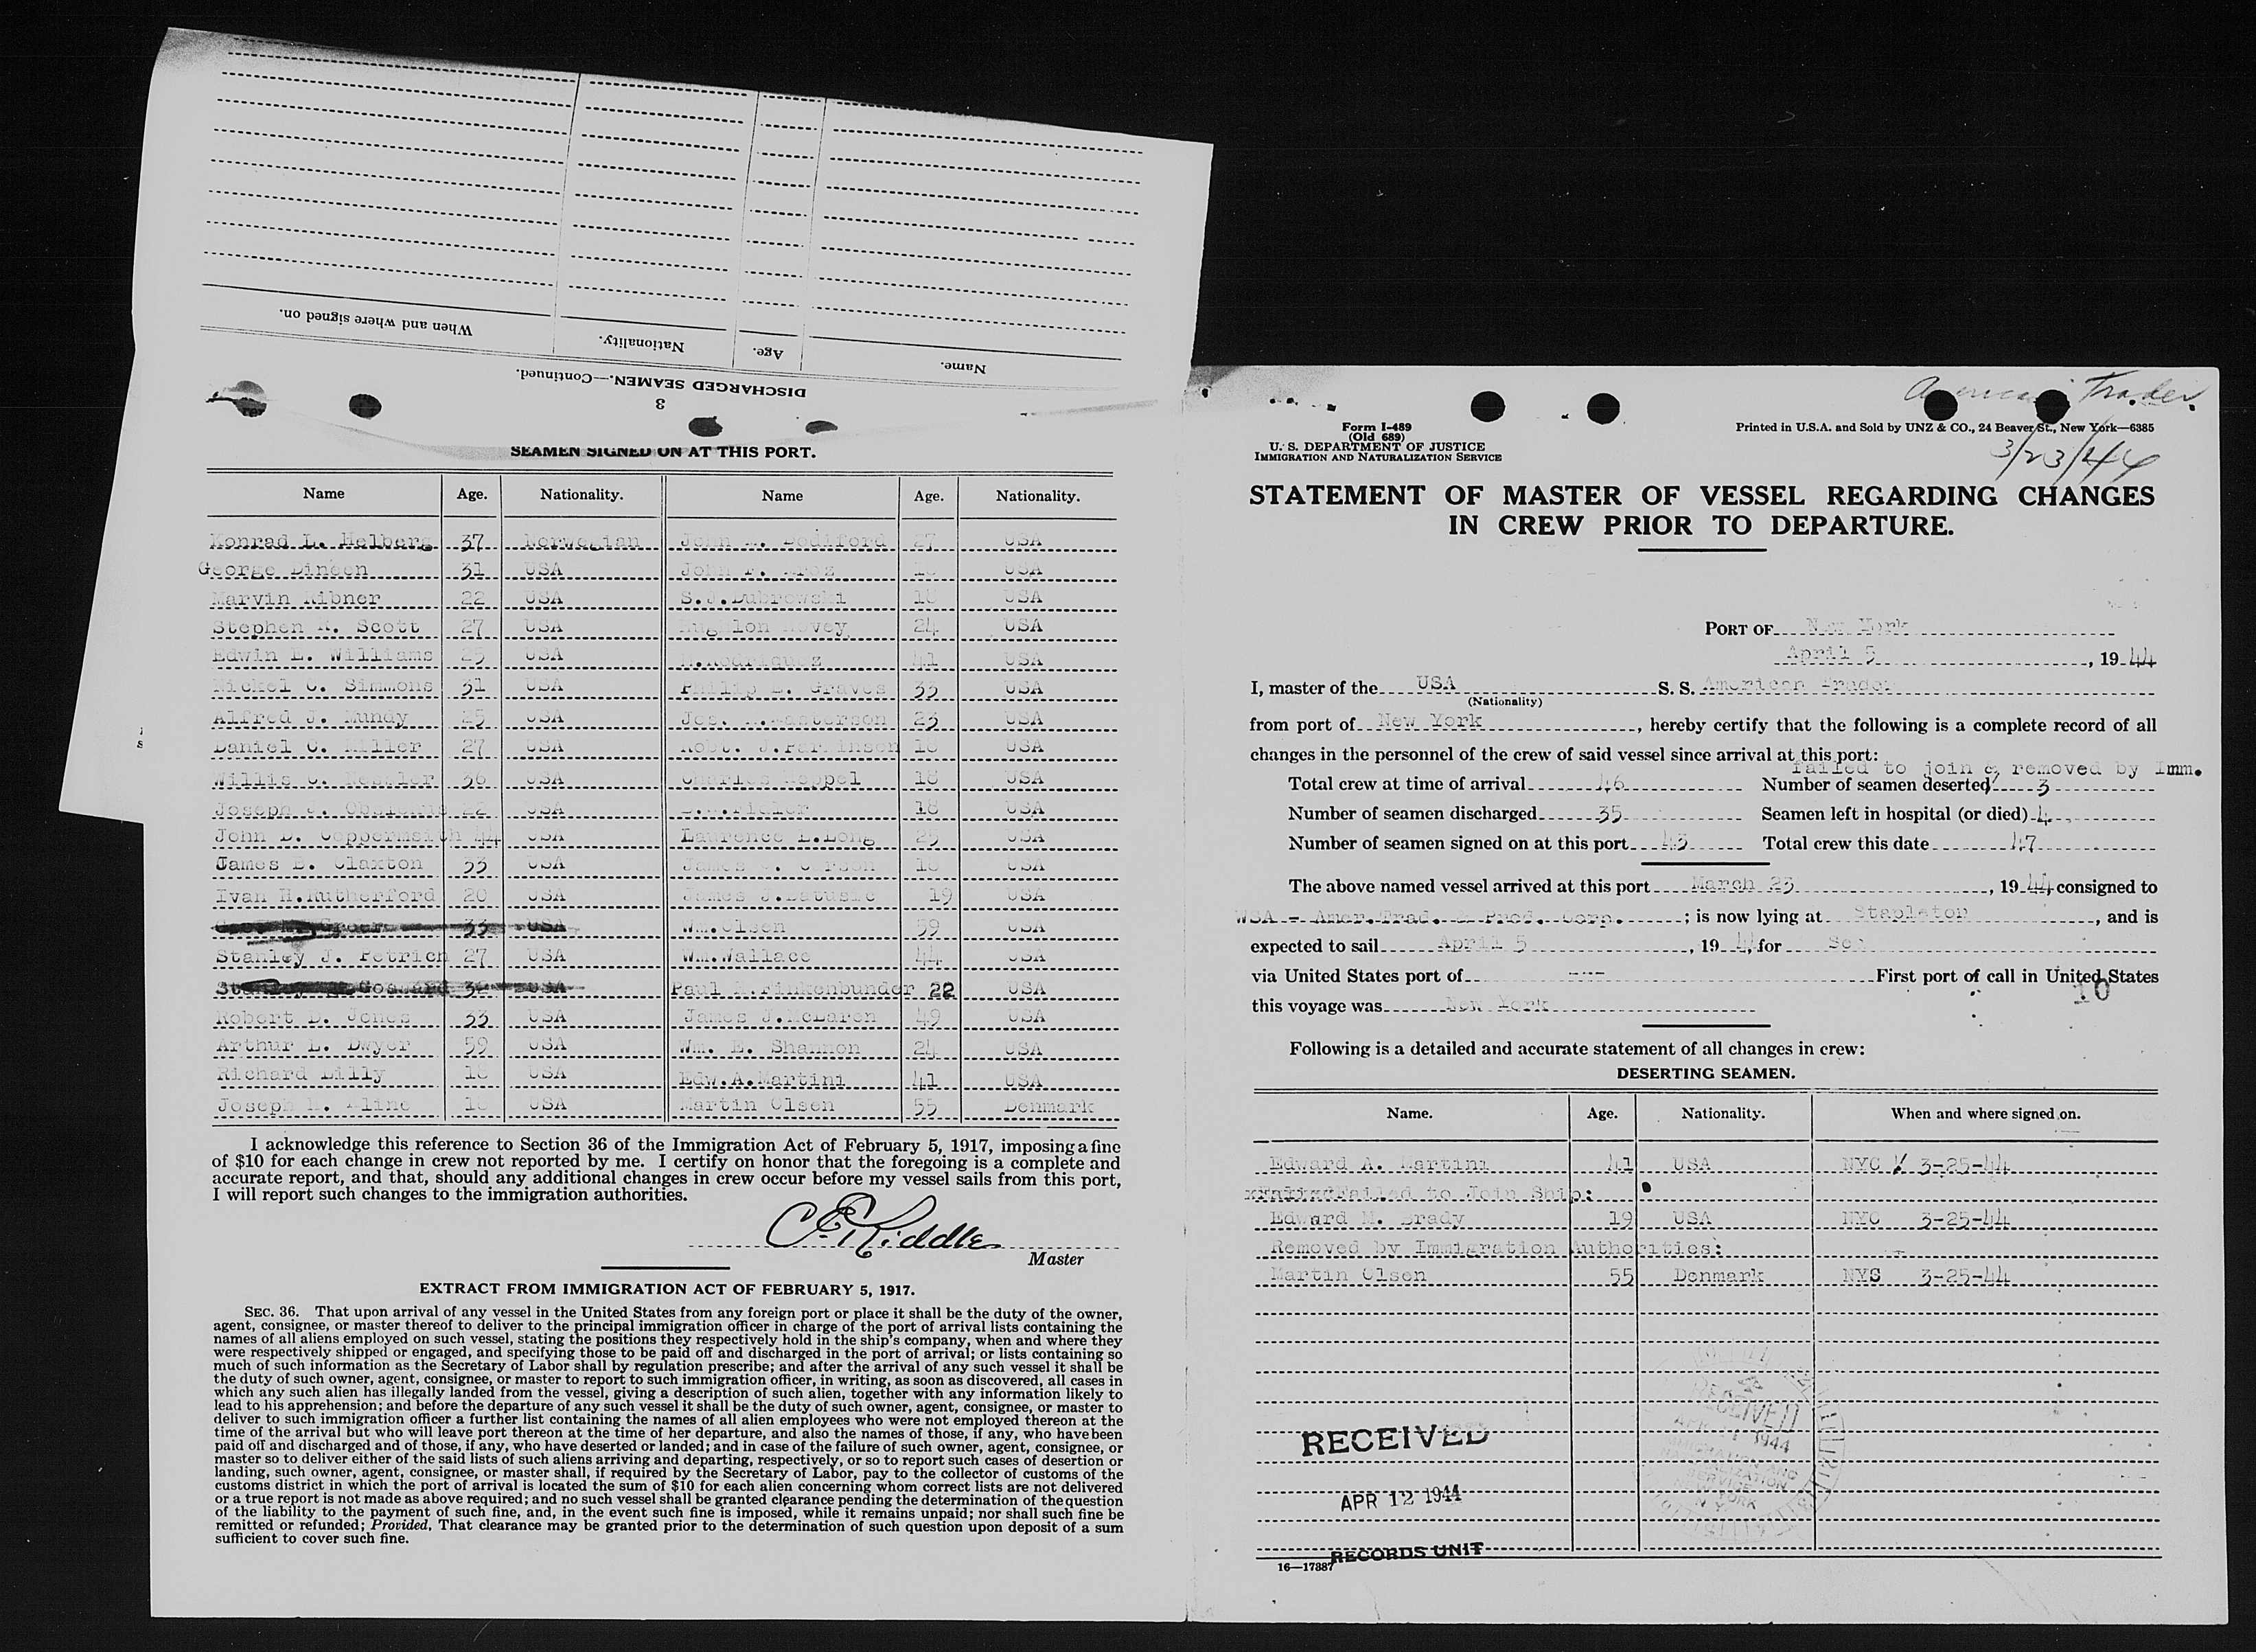 When and where signed on.
Nationality.
Age.
Name.
DISCHARGED SEAMEN.—Continued.
3
SEAMEN SIGNED ON AT THIS PORT.
Name Age. Nationality. Name Age. Nationality.
Konrad L. Helberg 37 Norwegian John Dodiford 27 USA
George Dineen 31 USA John F. USA
Marvin Ribner 22 USA S.J.Dubrowski 18 USA
Stephen R. Scott 27 USA 24 USA
Edwin E. Williams 25 USA M.Rodriquez 41 USA
Mickel C. Simmons 31 USA Philip E. Graves 33 USA
Alfred J. Mundy 25 USA Jos. Masterson 23 USA
Daniel C. Miller 27 USA Robt. J.Parkinson 18 USA
Willis C. 36 USA Charles Keppel 18 USA
Joseph J. 22 USA 18 USA
John D. Coppersmith 44 USA Laurence E.Long 25 USA
James B. Claxton 33 USA James 18 USA
Ivan H.Rutherford 20 USA James J. 19 USA
33 USA Wm.Olsen 59 USA
Stanley J. Petrich 27 USA Wm.Wallace 44 USA
USA Paul Finkenbunder 22 USA
Robert D. Jones 33 USA James J.McLaren 49 USA
Arthur L. Dwyer 59 USA Wm. E. Shannon 24 USA
Richard Lilly 18 USA Edw.A.Martini 41 USA
Joseph Kline 18 USA Martin Olsen 55 Denmark
I acknowledge this reference to Section 36 of the Immigration Act of February 5, 1917, imposing a fine
of $10 for each change in crew not reported by me. I certify on honor that the foregoing is a complete and
accurate report, and that, should any additional changes in crew occur before my vessel sails from this port,
I will report such changes to the immigration authorities.
C E Riddle
Master
EXTRACT FROM IMMIGRATION ACT OF FEBRUARY 5, 1917.
SEC. 36. That upon arrival of any vessel in the United States from any foreign port or place it shall be the duty of the owner,
agent, consignee, or master thereof to deliver to the principal immigration officer in charge of the port of arrival lists containing the
names of all aliens employed on such vessel, stating the positions they respectively hold in the ship's company, when and where they
were respectively shipped or engaged, and specifying those to be paid off and discharged in the port of arrival; or lists containing so
much of such information as the Secretary of Labor shall by regulation prescribe; and after the arrival of any such vessel it shall be
the duty of such owner, agent, consignee, or master to report to such immigration officer, in writing, as soon as discovered, all cases in
which any such alien has illegally landed from the vessel, giving a description of such alien, together with any information likely to
lead to his apprehension; and before the departure of any such vessel it shall be the duty of such owner, agent, consignee, or master to
deliver to such immigration officer a further list containing the names of all alien employees who were not employed thereon at the
time of the arrival but who will leave port thereon at the time of her departure, and also the names of those, if any, who have been
paid off and discharged and of those, if any, who have deserted or landed; and in case of the failure of such owner, agent, consignee, or
master so to deliver either of the said lists of such aliens arriving and departing, respectively, or so to report such cases of desertion or
landing, such owner, agent, consignee, or master shall, if required by the Secretary of Labor, pay to the collector of customs of the
customs district in which the port of arrival is located the sum of $10 for each alien concerning whom correct lists are not delivered
or a true report is not made as above required; and no such vessel shall be granted clearance pending the determination of the question
of the liability to the payment of such fine, and, in the event such fine is imposed, while it remains unpaid; nor shall such fine be
remitted or refunded; Provided, That clearance may be granted prior to the determination of such question upon deposit of a sum
sufficient to cover such fine.
American Trader
Form I-489
(Old 689)
U. S. DEPARTMENT OF JUSTICE
IMMIGRATION AND NATURALIZATION SERVICE
Printed in U.S.A. and Sold by UNZ & CO., 24 Beaver St., New York—6385
3/23/44
STATEMENT OF MASTER OF VESSEL REGARDING CHANGES
IN CREW PRIOR TO DEPARTURE.
PORT OF New York
April 5, 1944
I, master of the USA S. S. American Trader
(Nationality)
from port of New York, hereby certify that the following is a complete record of all
changes in the personnel of the crew of said vessel since arrival at this port:
failed to join & removed by Imm.
Total crew at time of arrival 46 Number of seamen deserted 3
Number of seamen discharged 35 Seamen left in hospital (or died) 4
Number of seamen signed on at this port 43 Total crew this date 47
The above named vessel arrived at this port March 23, 1944 consigned to
WSA - Amer.Trad. & Prod. Corp.; is now lying at Stapleton, and is
expected to sail April 5, 1944 for Sea
via United States port of --- First port of call in United States
10
this voyage was New York
Following is a detailed and accurate statement of all changes in crew:
DESERTING SEAMEN.
Name. Age. Nationality. When and where signed on.
Edward A. Martini 41 USA NYC 3-25-44
Failed to Join Ship:
Edward M. Brady 19 USA NYC 3-25-44
Removed by Immigration Authorities:
Martin Olsen 55 Denmark NYS 3-25-44
RECEIVED
APR 12 1944
RECORDS UNIT
RECEIVED
1944
IMMIGRATION AND
NATURALIZATION
SERVICE
NEW YORK
N Y
16—17887